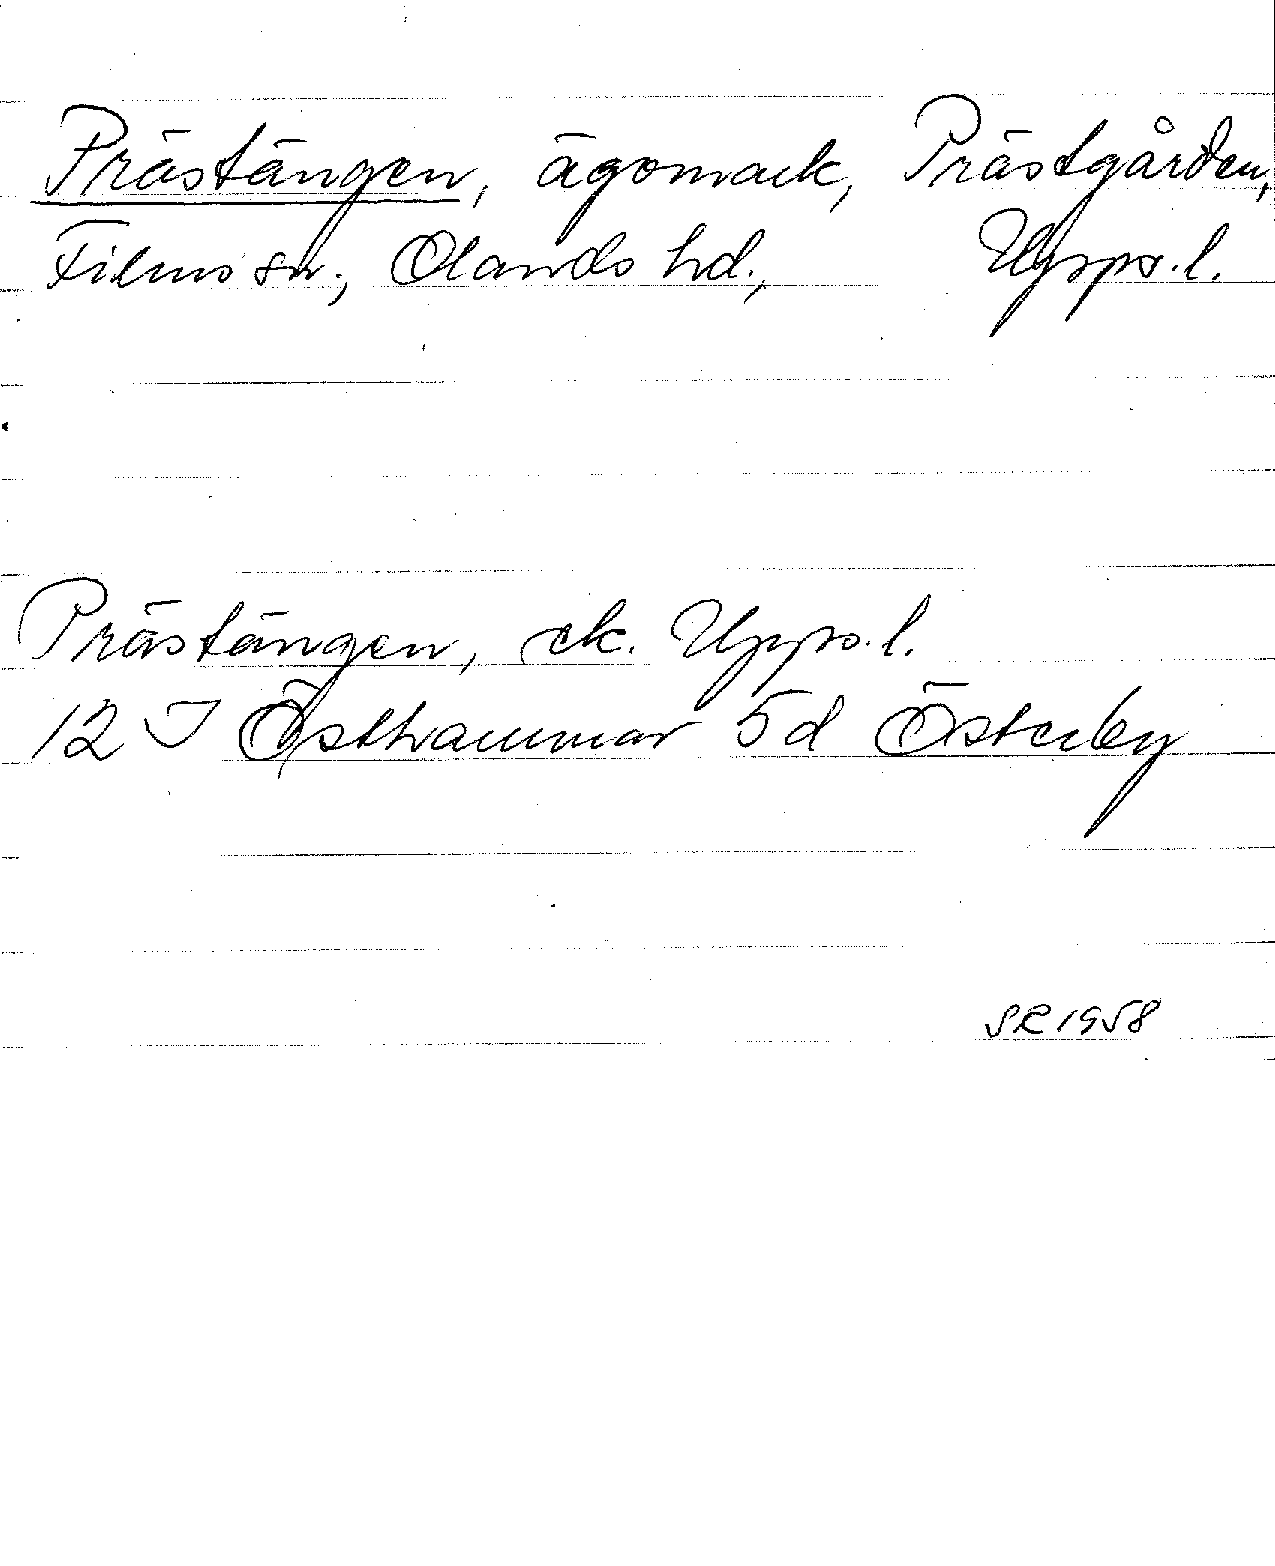 Prästängen, ägomark, Prästgården,
Films sn., Olands hd., Upps.l.
Prästängen, ek. Upps.l.
12 I Östhammar 5d Österby
SR 1958